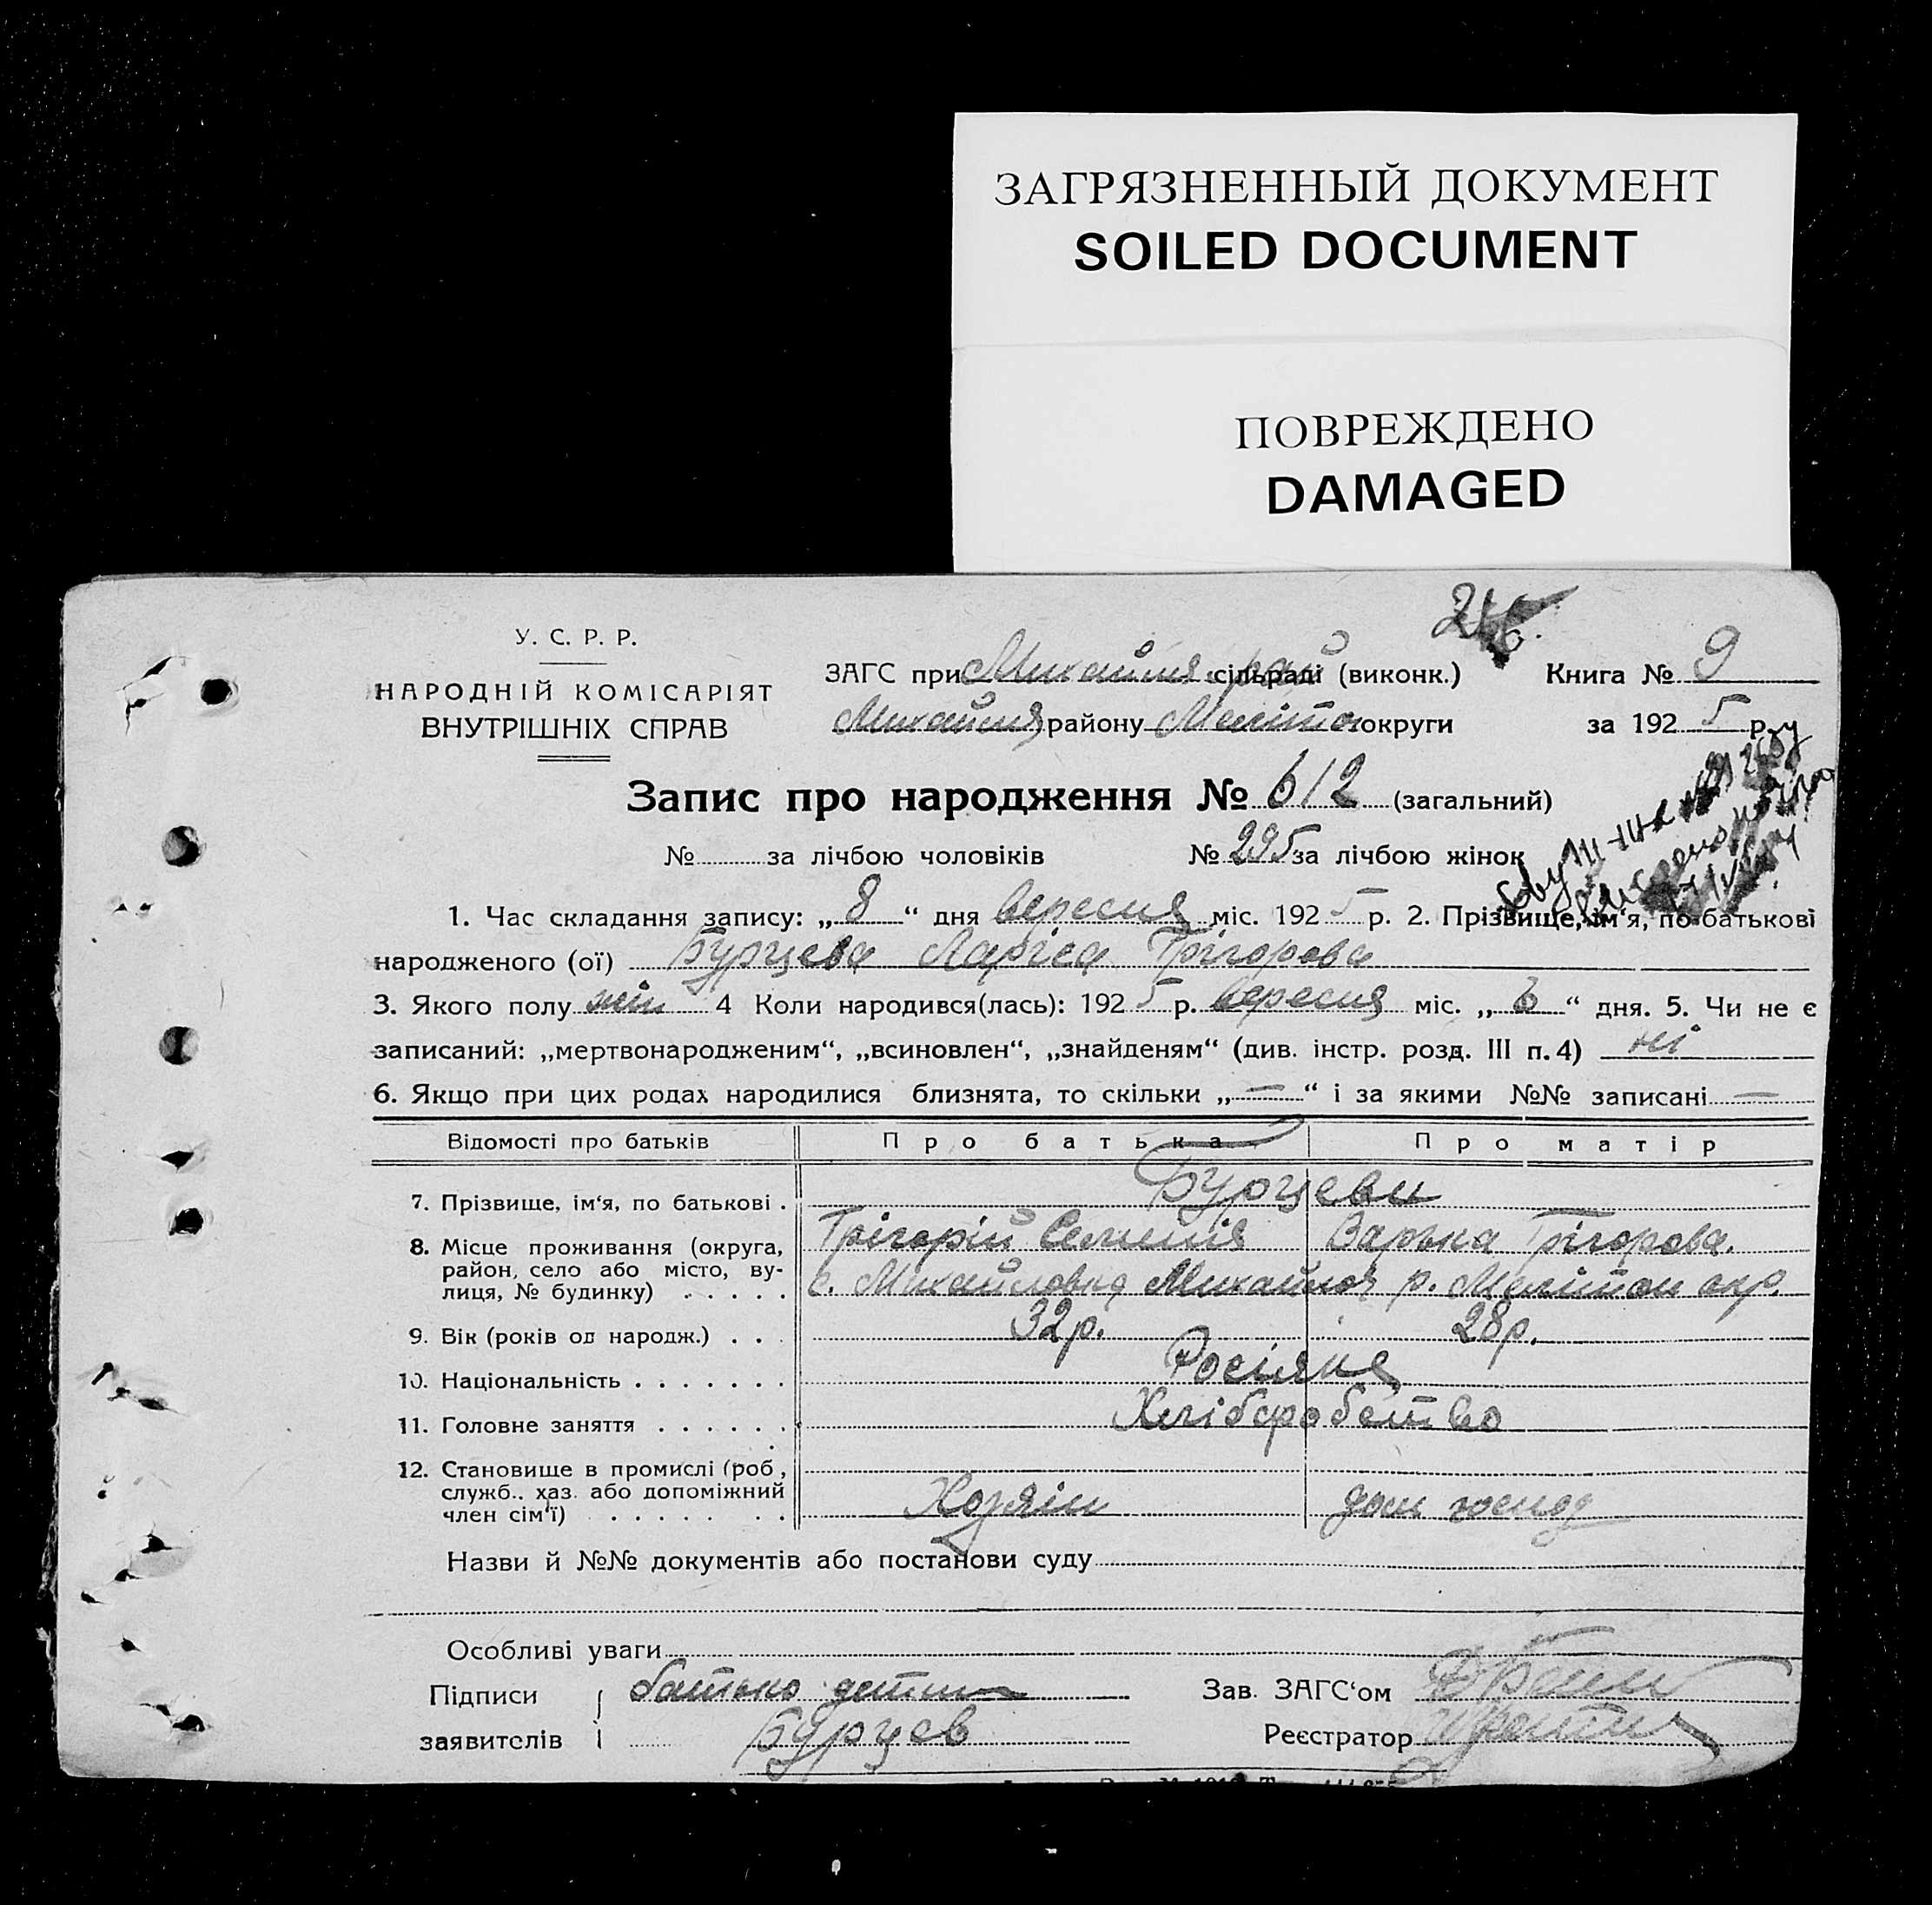 ЗАГРЯЗНЕННЫЙ ДОКУМЕНТ
SOILED DOCUMENT
ПОВРЕЖДЕНО
DAMAGED
У. С. Р. Р.
НАРОДНІЙ КОМІСАРІЯТ
ВНУТРІШНІХ СПРАВ
ЗАГС при Михайлів. рай сільраді (виконк.) Книга № 9
Михайлів району Меліто округи за 1925 р.
Запис про народження № 612 (загальний)
№ за лічбою чоловіків № 295 за лічбою жінок
1. Час складання запису: „8“ дня вересня міс. 1925 р. 2. Прізвище, ім‘я, по-батькові
народженого (ої) Бурцева Ларіса Грігорова
3. Якого полу жін 4 Коли народився(лась): 1925 р. вересня міс. „6“ дня. 5. Чи не є
записаний: „мертвонародженим“, „всиновлен“, „знайденям“ (див. інстр. розд. III п. 4) ні
6. Якщо при цих родах народилися близнята, то скільки „—“ і за якими №№ записані —
Відомості про батьків Про батька Про матір
7. Прізвище, ім‘я, по батькові . Бурцеви
Грігорій Семенів Варька Грігорова.
8. Місце проживання (округа,
район, село або місто, ву-
лиця, № будинку) . . . . . с. Михайловка Михайлов р. Мелітоп окр.
9. Вік (років од народж.) . . . 32 р. 28 р.
10. Національність . . . . . . . Росіяне
11. Головне заняття . . . . . . Хліборобство
12. Становище в промислі (роб.,
служб., хаз. або допоміжний
член сім‘ї) . . . . . . . . Хозяін дом госпо
Назви й №№ документів або постанови суду
Особливі уваги
Підписи батько детин
заявителів Бурцев
Зав. ЗАГС‘ом
Реєстратор